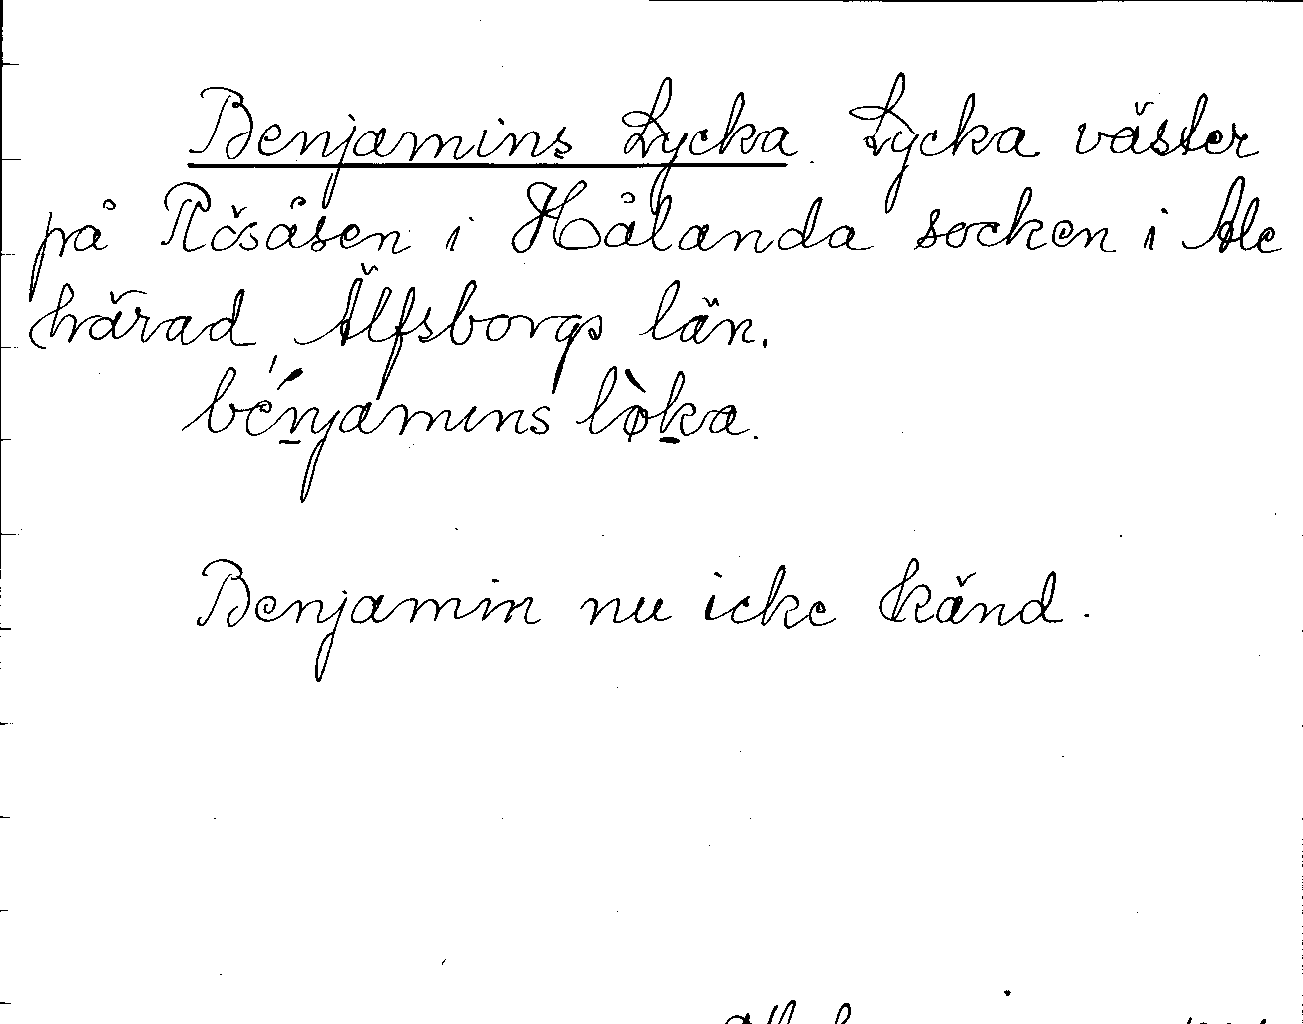 Benjamins Lycka. Lycka väster
på Rösåsen i Hålanda socken i Ale
härad, Älfsborgs län.
bénjamıns lø̀ka.
Benjamin nu icke känd.